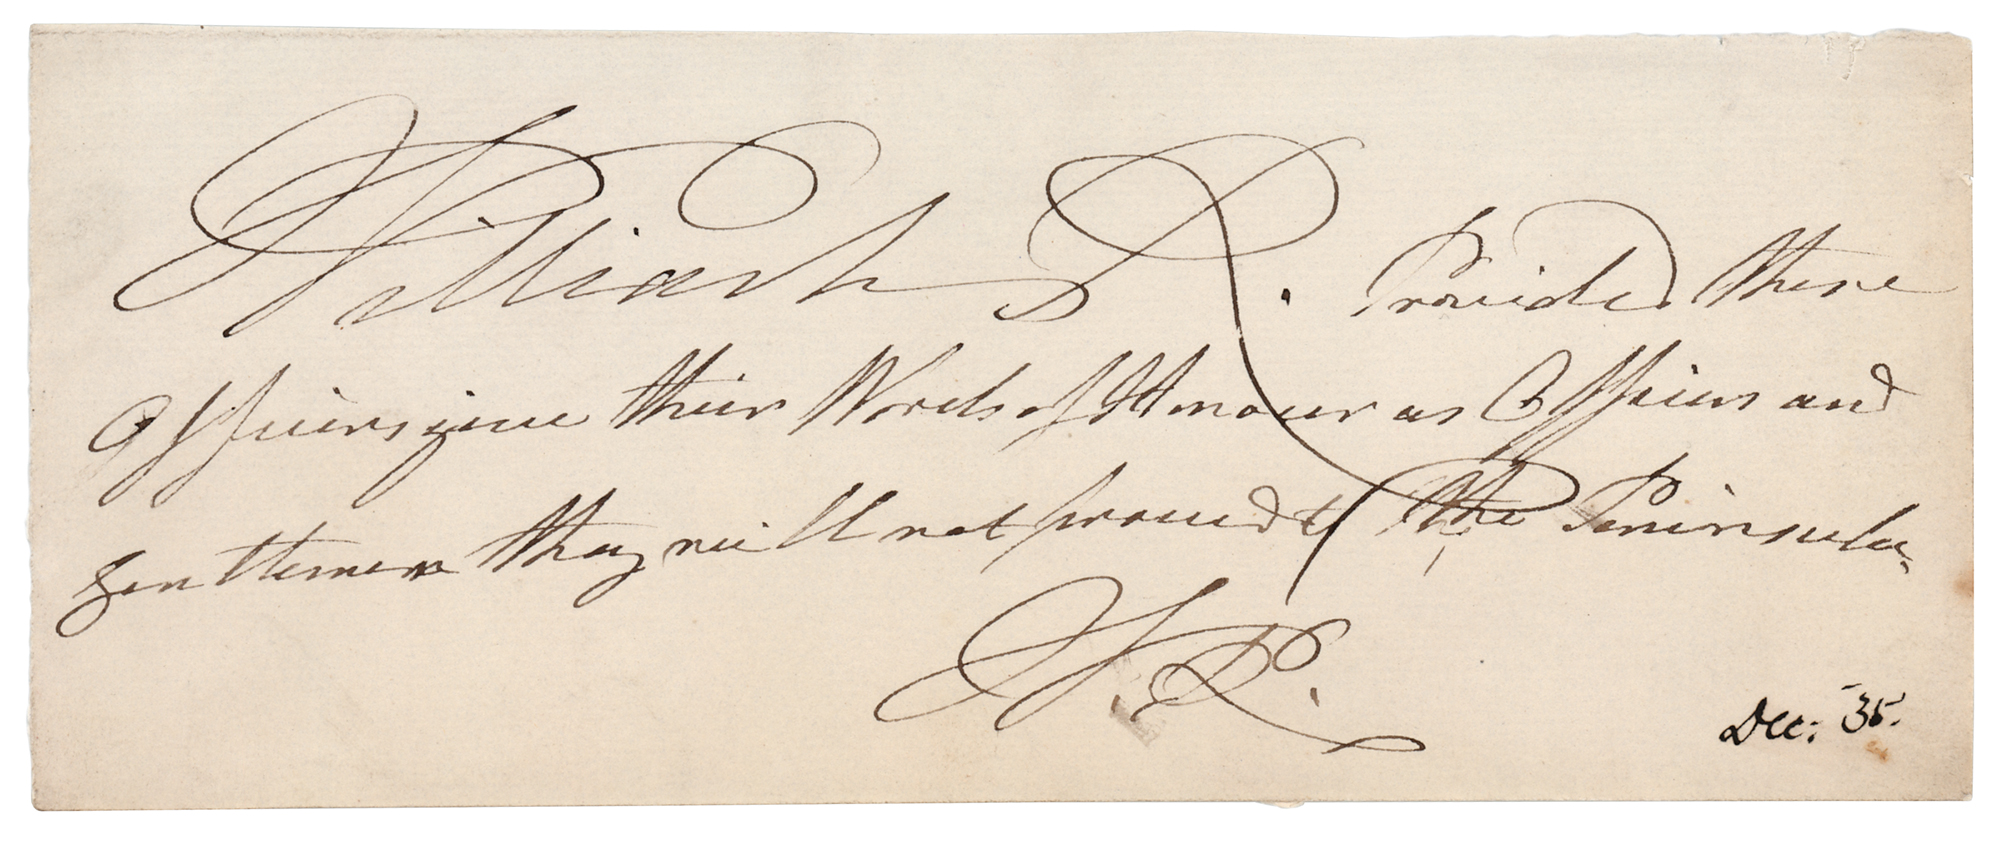 William R. Provided these
Officers give their Words of Honour as Officers and
Gentlemen they will not proceed to the Peninsula.
W. R.
Dec: '35.